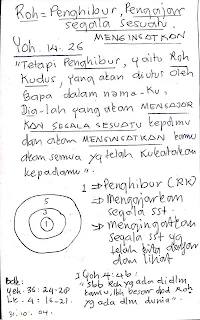 Roh = Penghibur, Pengajar
segala sesuatu,
MENGINGATKAN
Yoh. 14:26
"Tetapi Penghibur, yaitu Roh
Kudus, yang akan diutus oleh
Bapa dalam nama-Ku,
Dia-lah yang akan MENGAJAR
KAN SEGALA SESUATU kepdmu
dan akan MENGINGATKAN kamu
akan semua yg telah Kukatakan
kepadamu".
1 ⇒ Penghibur (RK)
⇒ Mengajarkan
segala sst
⇒ mengingatkan
segala sst yg
telah kita dengar
dan lihat
1
Bdk:
Yeh. 36:24-28
Lk. 4:16-21.
31.10.04.
1 Yoh. 4:4b:
"Sbb Roh yg ada didlm
kamu, lbh besar dpd Roh
yg ada dlm dunia".